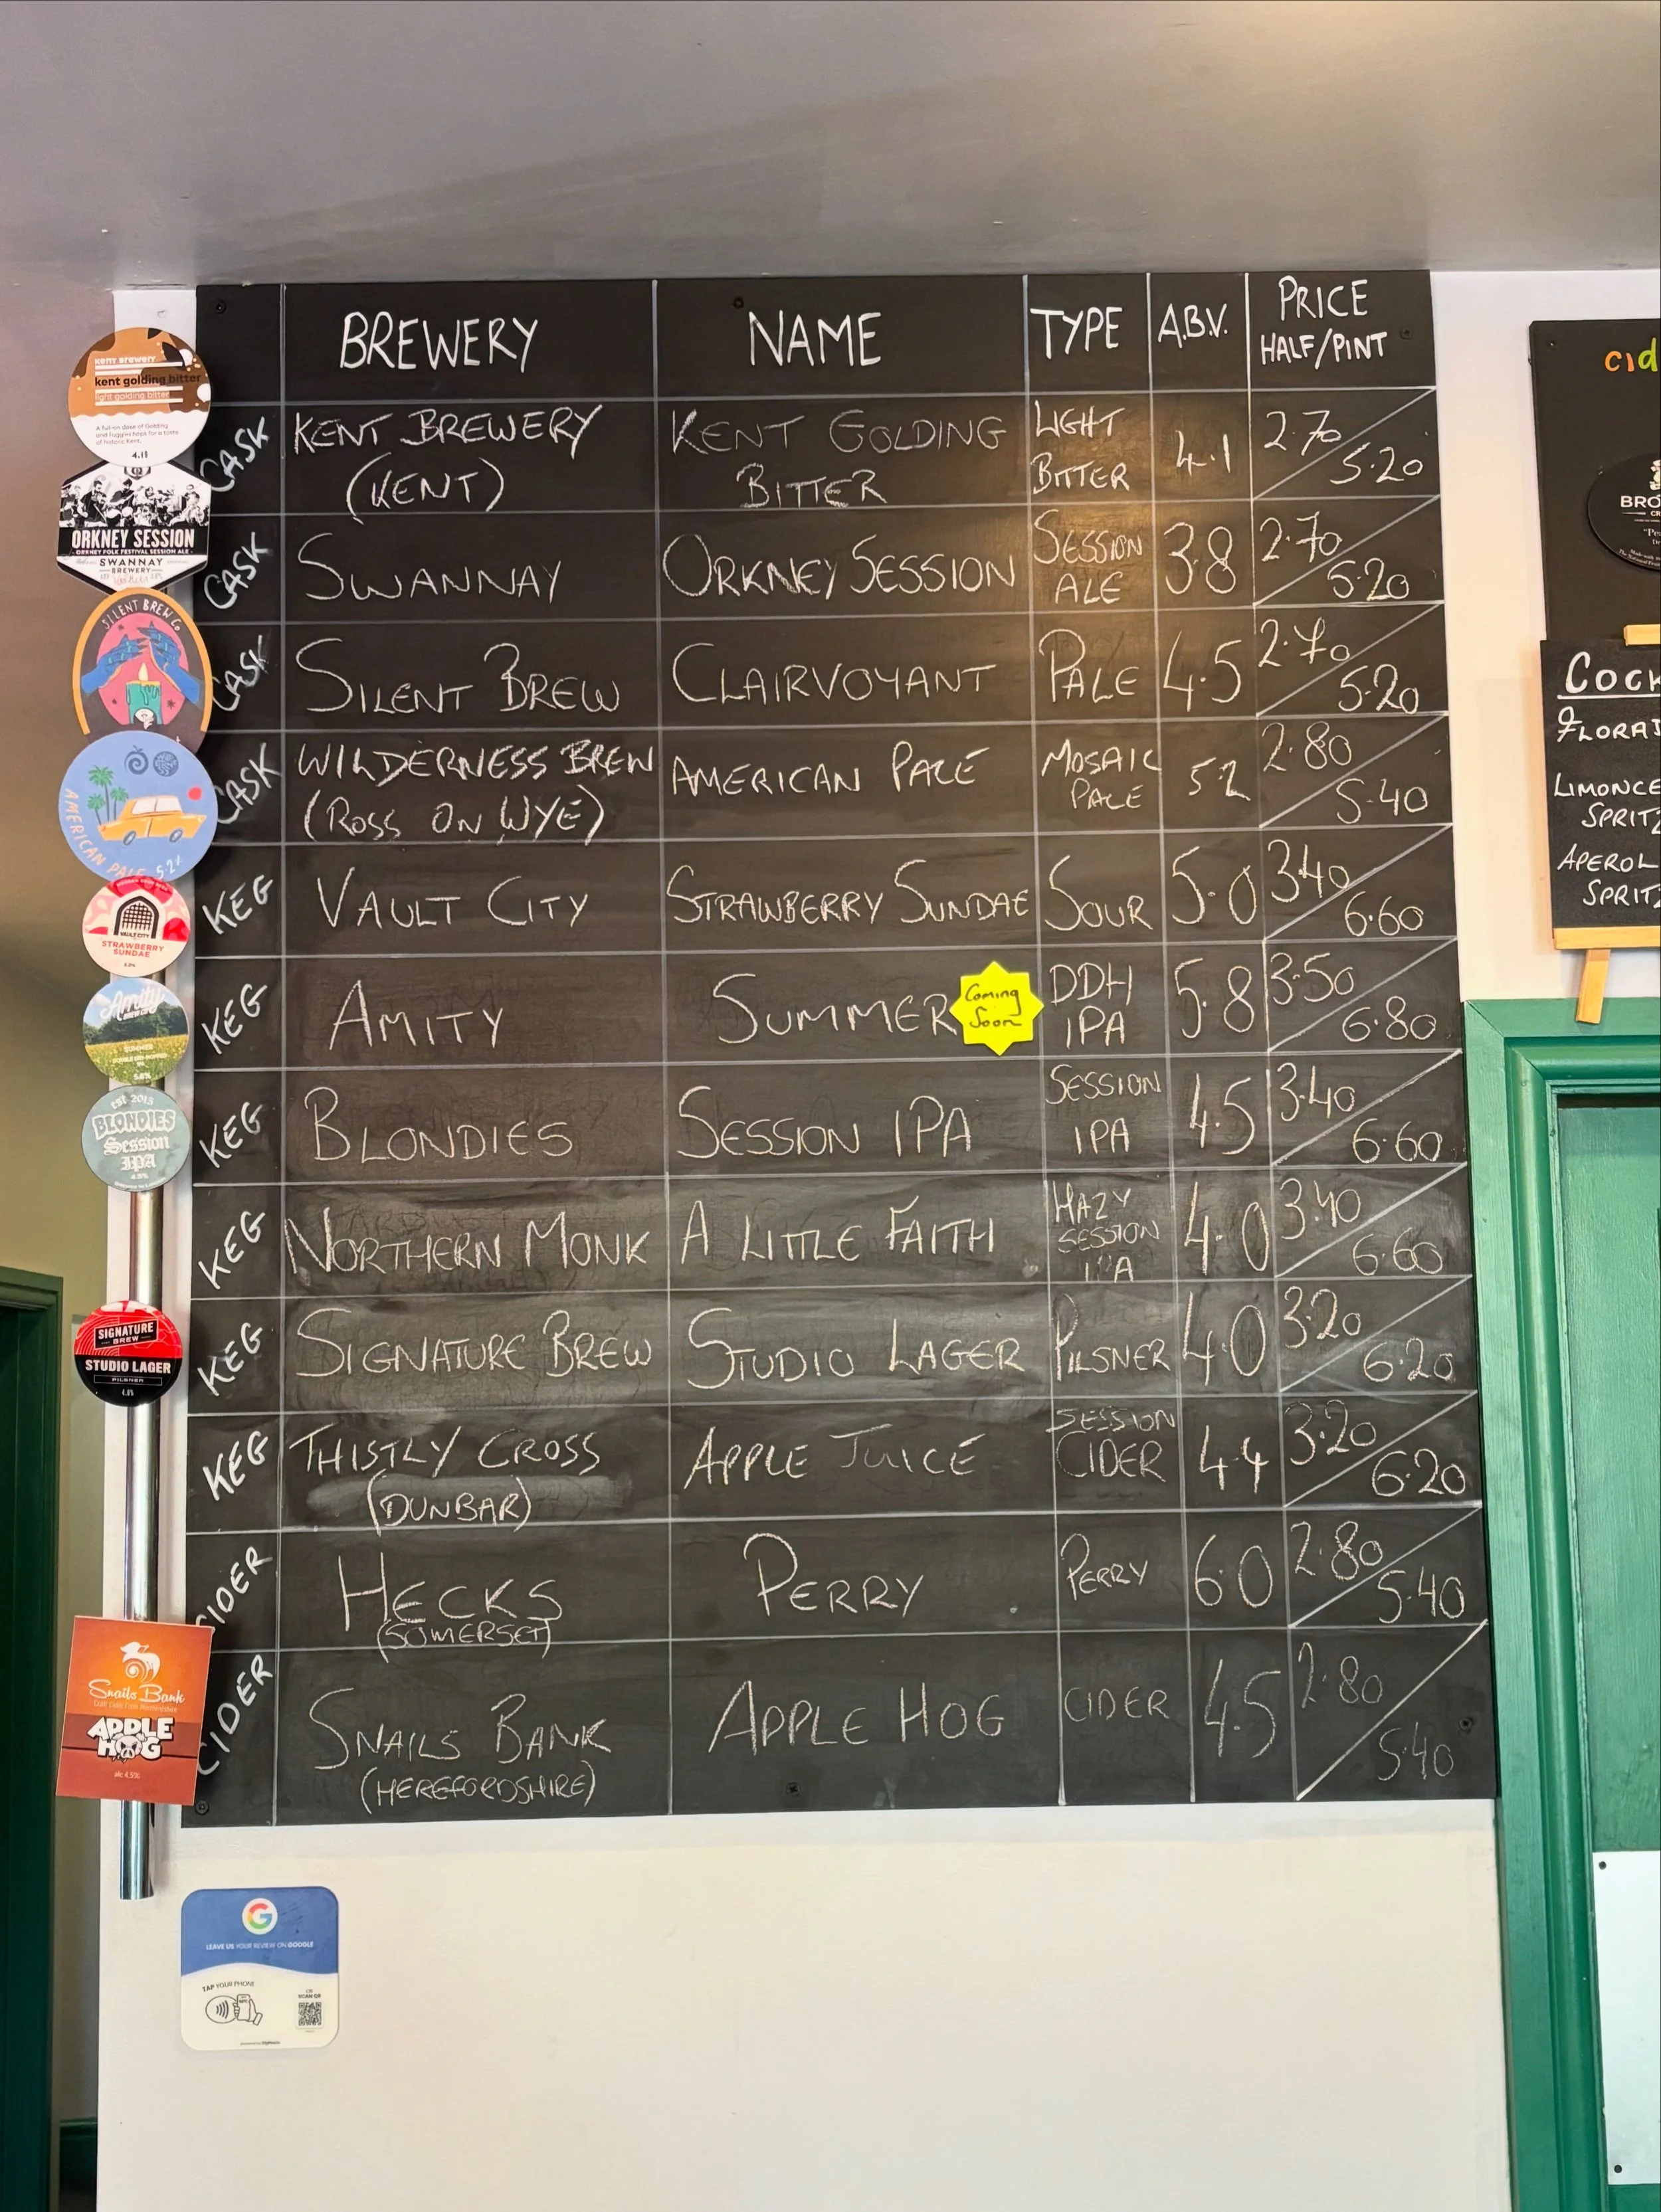 BREWERY NAME TYPE A.B.V. PRICE HALF/PINT
CASK KENT BREWERY (KENT) KENT GOLDING BITTER LIGHT BITTER 4.1 2.70 5.20
CASK SWANNAY ORKNEY SESSION SESSION ALE 3.8 2.70 5.20
CASK SILENT BREW CLAIRVOYANT PALE 4.5 2.70 5.20
CASK WILDERNESS BREW (ROSS ON WYE) AMERICAN PALE MOSAIC PALE 5.2 2.80 5.40
KEG VAULT CITY STRAWBERRY SUNDAE SOUR 5.0 3.40 6.60
KEG AMITY SUMMER Coming Soon DDH IPA 5.8 3.50 6.80
KEG BLONDIES SESSION IPA SESSION IPA 4.5 3.40 6.60
KEG NORTHERN MONK A LITTLE FAITH HAZY SESSION IPA 4.0 3.40 6.60
KEG SIGNATURE BREW STUDIO LAGER PILSNER 4.0 3.20 6.20
KEG THISTLY CROSS (DUNBAR) APPLE JUICE SESSION CIDER 4.4 3.20 6.20
CIDER HECKS (SOMERSET) PERRY PERRY 6.0 2.80 5.40
CIDER SNAILS BANK (HEREFORDSHIRE) APPLE HOG CIDER 4.5 2.80 5.40
KENT BREWERY
kent golding bitter
light golding bitter
A full-on dose of Golding
and Fuggles hops for a taste
of historic Kent.
ORKNEY SESSION
ORKNEY FOLK FESTIVAL SESSION ALE
SWANNAY
BREWERY
SILENT BREW Co
AMERICAN PALE 5.2%
VAULT CITY
STRAWBERRY
SUNDAE
5.0%
Amity
BREW CO
SUMMER
5.8%
est 2015
BLONDIES
Session
IPA
4.5%
SIGNATURE
BREW
STUDIO LAGER
PILSNER
Snails Bank
APPLE
HOG
alc 4.5%
LEAVE US YOUR REVIEW ON GOOGLE
TAP YOUR PHONE
OR
SCAN QR
cid
BRO
COCK
FLORA
LIMONCE
SPRITZ
APEROL
SPRITZ